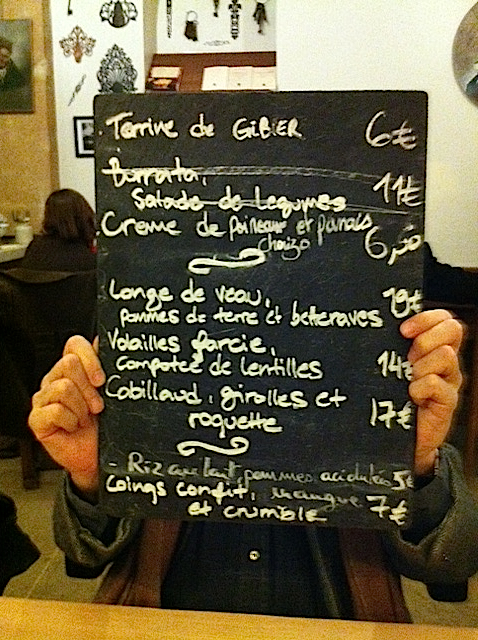 Terrine de GiBiER 6€
Burrata, 11€
Salade de Legumes
Creme de Poireaux et panais 6,50
chorizo
Longe de veau, 19€
pommes de terre et betteraves
Volailles farcie, 14€
compotée de lentilles
Cabillaud, girolles et 17€
roquette
- Riz au lait, pommes acidulées 5€
Coings confit, meringue 7€
et crumble